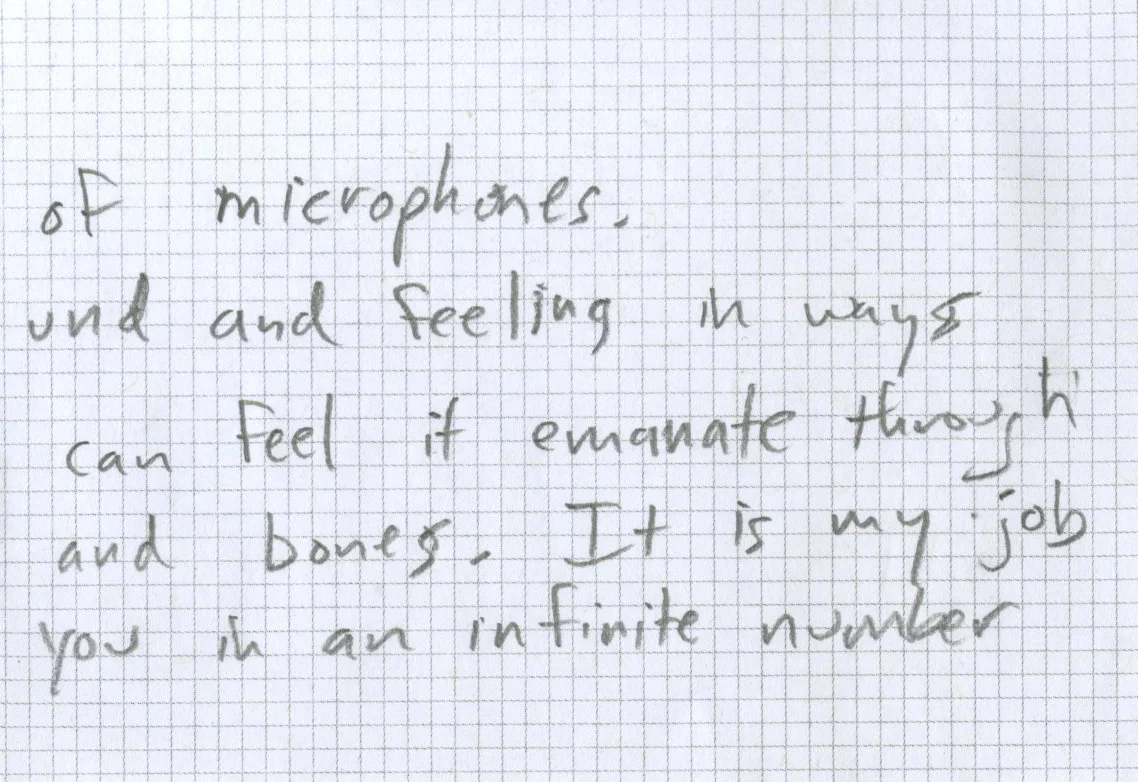 of microphones.
und and feeling in ways
can feel it emanate through
and bones. It is my job
you in an infinite number